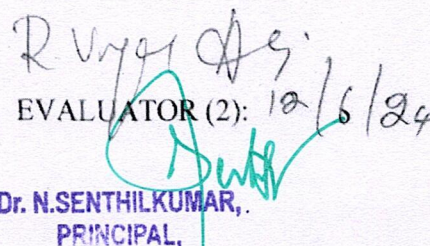 R. Vijay
EVALUATOR (2): 12/6/24
Dr. N.SENTHILKUMAR,.
PRINCIPAL,